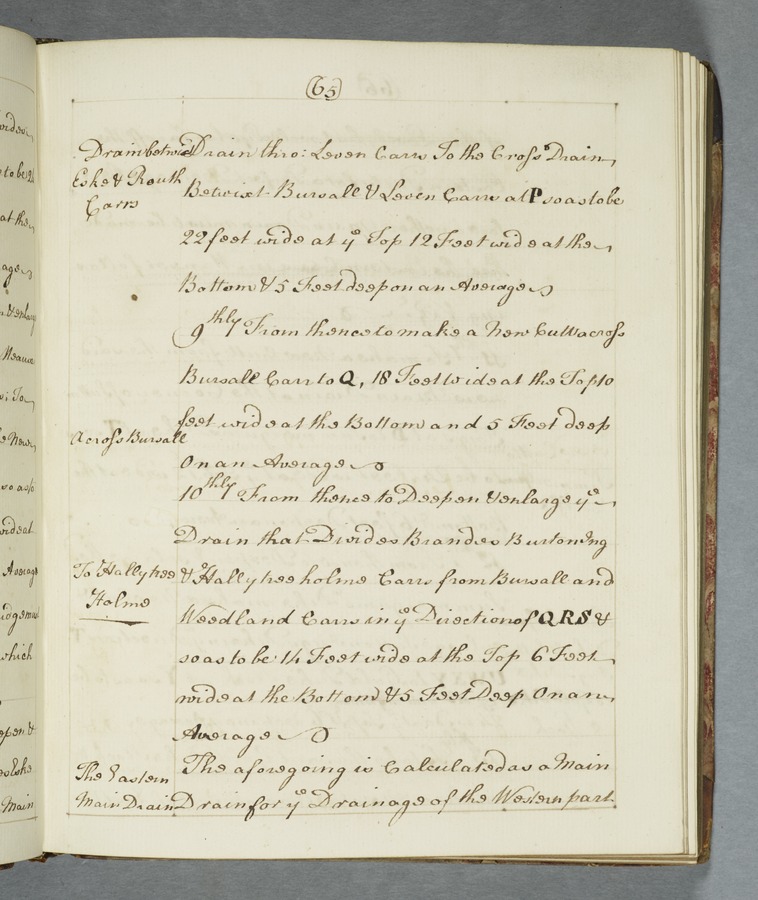 (65)
Drain betwixt
Eske & Routh
Carrs
Drain thro: Leven Carrs To the Cross Drain
Betwixt Bursall & Leven Carrs at P so as to be
22 feet wide at ye Top 12 Feet wide at the
Bottom & 5 Feet deep on an Average
9thly From thence to make a New Cutt across
Bursall Carr to Q, 18 Feet wide at the Top 10
feet wide at the Bottom and 5 Feet deep
Across Bursall
On an Average
10thly From thence to Deepen & enlarge ye
Drain that Divides Brandes Burton Ing
To Hallytree
Holme
& Hallytreeholme Carrs from Bursall and
Weedland Carrs in ye Direction of QRS &
so as to be 14 Feet wide at the Top 6 Feet
wide at the Bottom & 5 Feet Deep On an
Average
The Eastern
Main Drain
The aforegoing is Calculated as a Main
Drain for ye Drainage of the Western part